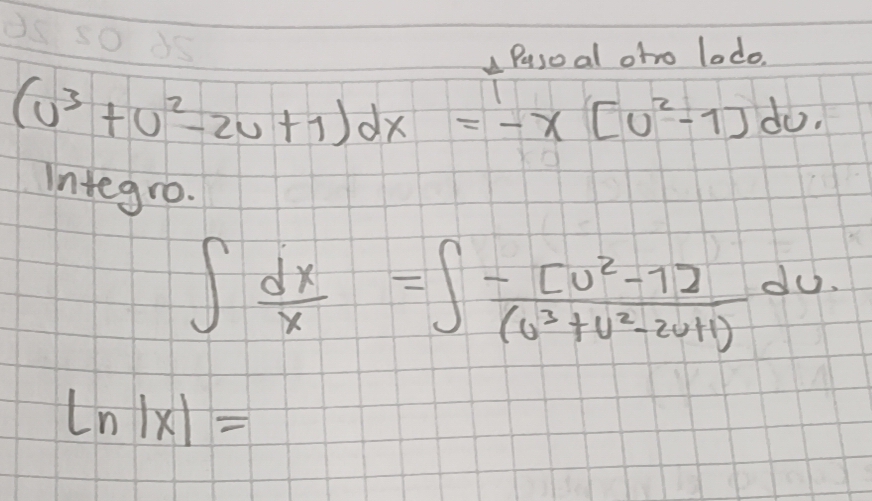 Paso al otro lado.
(u³ + u² - 2u + 1) dx = - x [u² - 1] du.
Integro.
∫ dx/x = ∫ - [u² - 1] / (u³ + u² - 2u + 1) du.
Ln |x| =